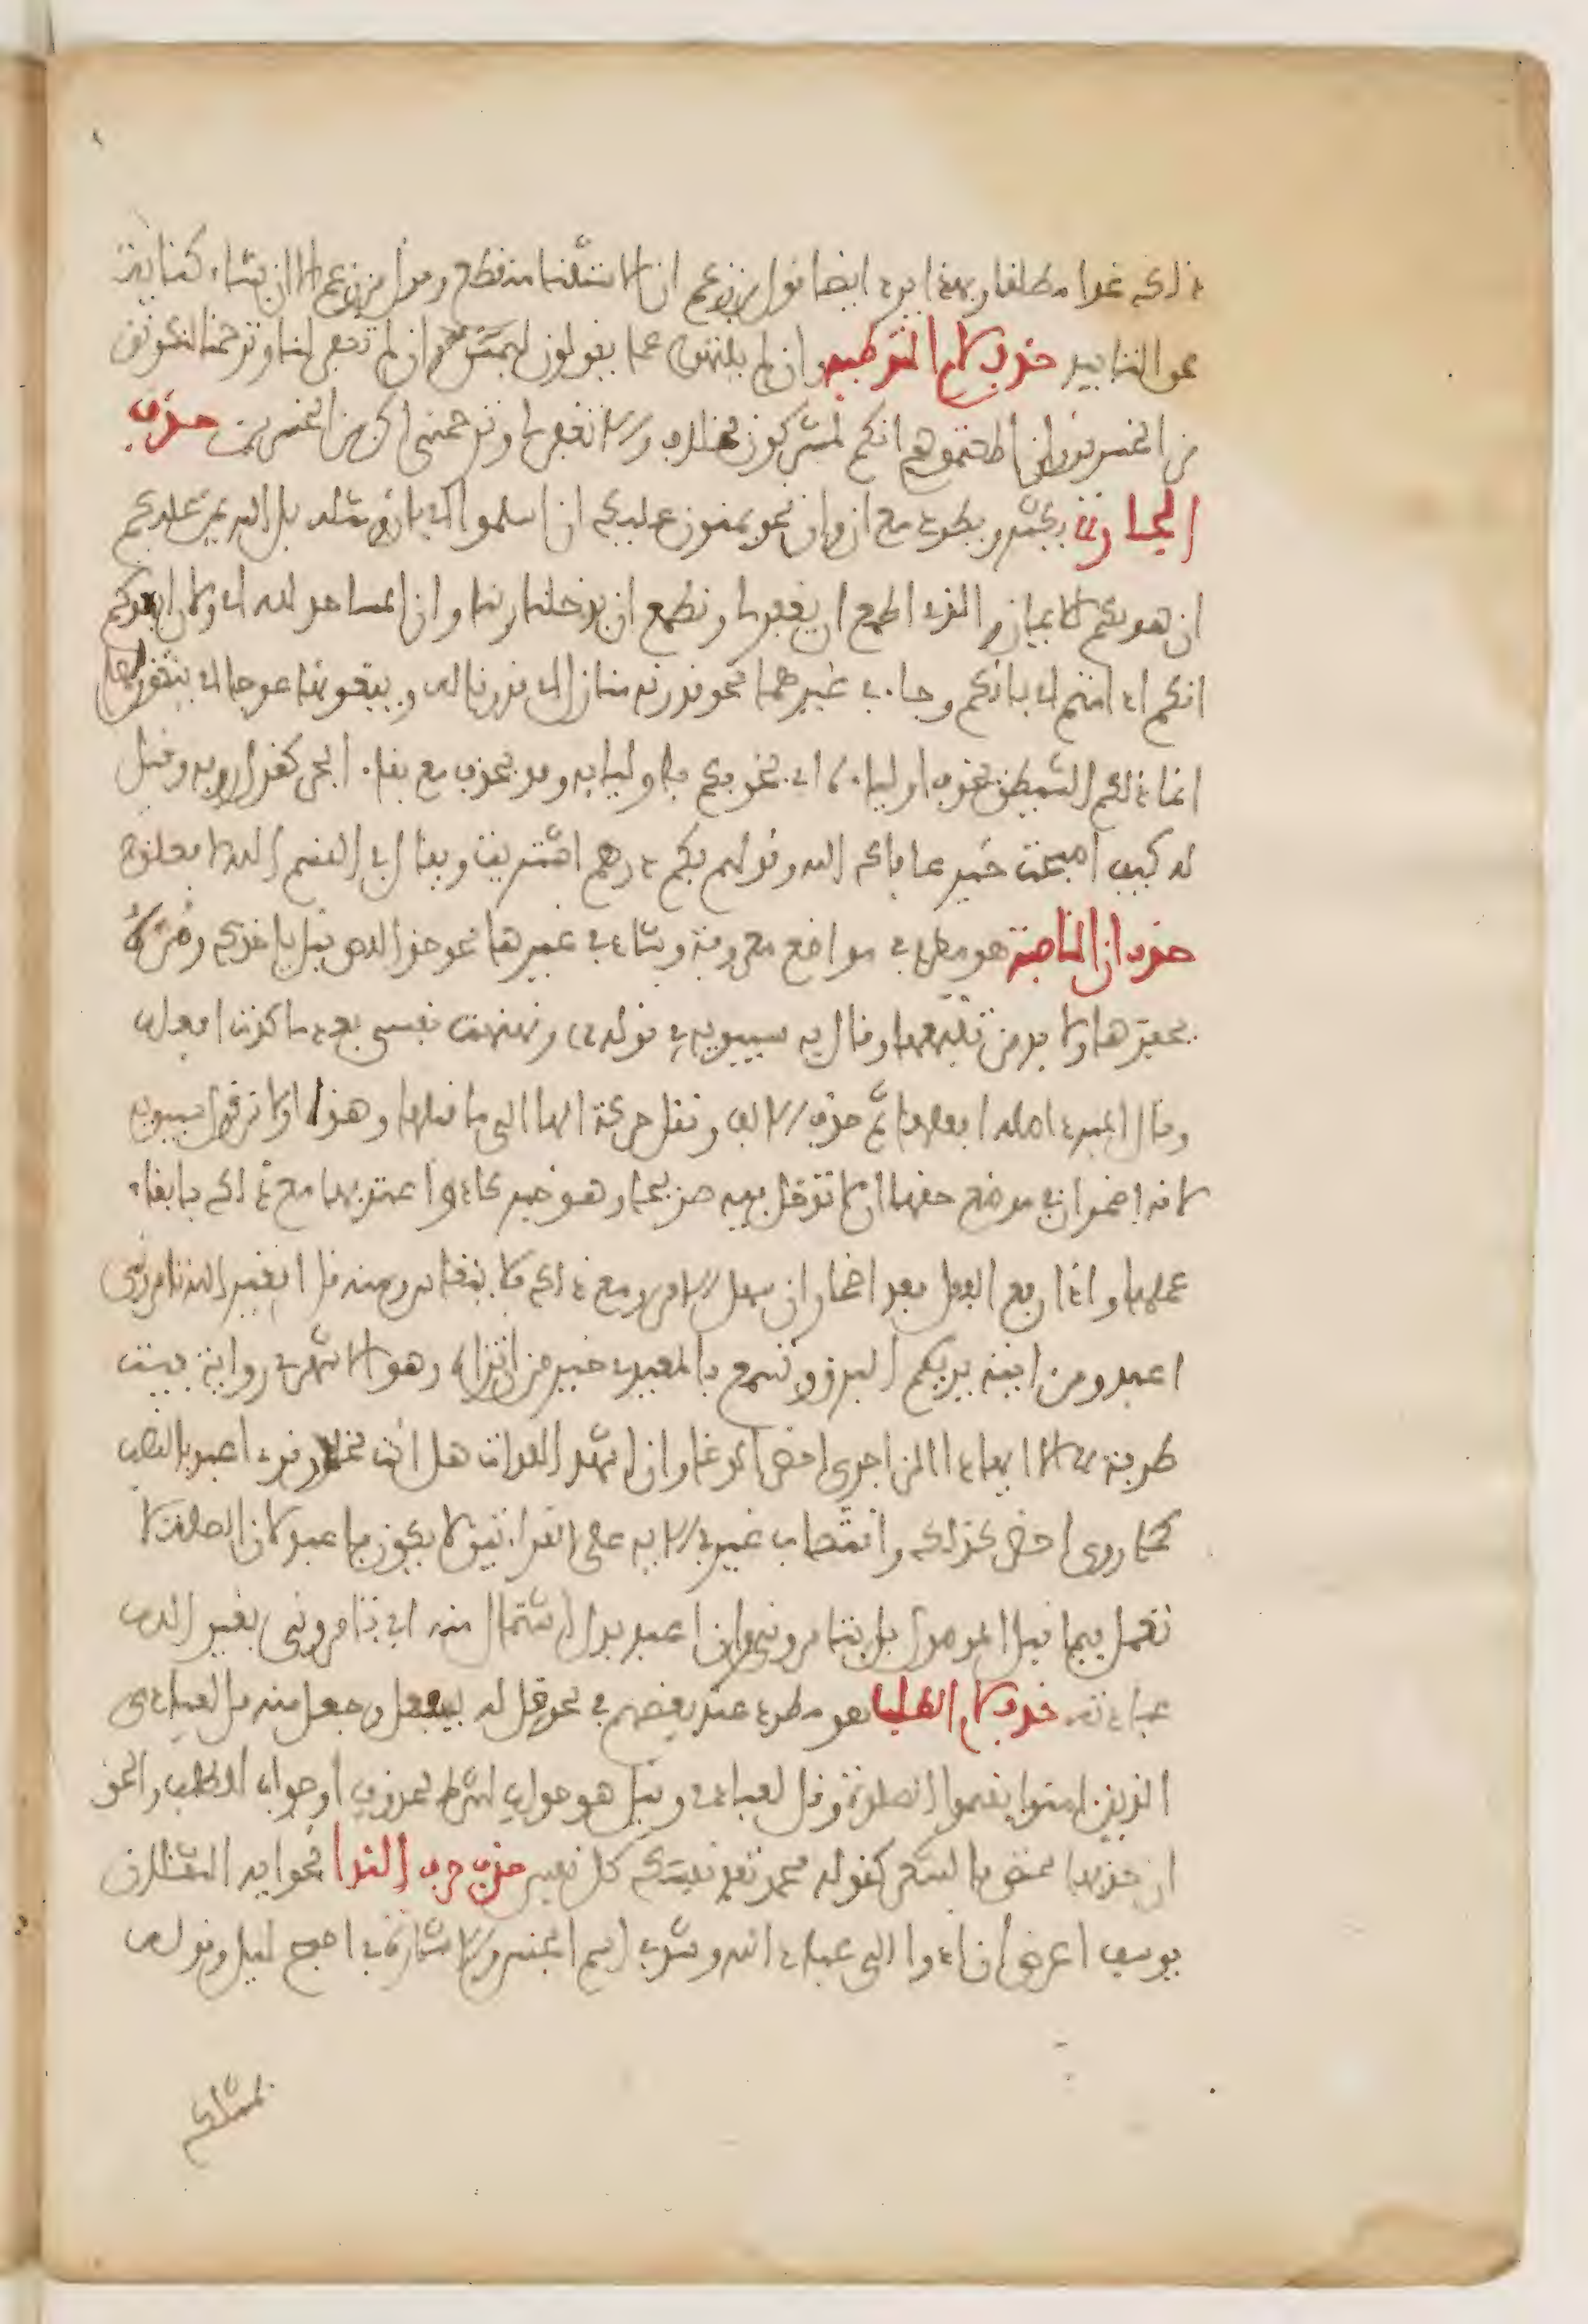 ذلك غدا مطلقا وبهذا يرد ايضا قول من زعم ان الاستثنا منقطع وقول من زعم الا ان يشاء كناية
عن التابيد حذف لام التوطية وان لم ينتهوا عما يقولون ليمسن وان لم تغفر لنا وترحمنا لنكونن
من الخسرين وان اطعتموهم انكم لمشركون بخلاف والا تغفر لي وترحمني اكن من الخسرين حذف
الجار يكثر ويطرد مع ان وان نحو يمنون عليك ان اسلموا اي بان ومثله بل الله يمن عليكم
ان هديكم للايمان والذي اطمع ان يغفر لي ونطمع ان يدخلنا ربنا وان المساجد لله اي ولان ايعدكم
انكم اذا متم اي بانكم وجاء في غيرهما نحو قدرنه منازل اي قدرنا له ويبغونها عوجا اي يبغون لها
انما ذلكم الشيطن يخوف اولياءه اي يخوفكم باوليايه وقد يحذف مع بقاء الجر كقول روبة وقيل
له كيف اصبحت خير عافاك الله وقولهم بكم درهم اشتريت ويقال في القسم الله لافعلن
حذف ان الناصبة هو مطرد في مواضع معروفة وشاذ في غيرها نحو خذ اللص قبل ياخذك ومره
يحفرها ولا بد من تتبعها وقال به سيبويه في قوله ونهنهت نفسي بعد ما كدت افعله
وقال المبرد اصله افعلها ثم حذف الالف ونقل حركة الها الى ما قبلها وهذا اولى من قول سيبويه
لانه اضمر ان في موضع حقها ان لا تدخل فيه صريحا وهو خبر كاد واعتد بها مع ذلك بابقاء
عملها واذا رفع الفعل بعد اضمار ان سهل الامر ومع ذلك فلا ينقاس ومنه قل افغير الله تامروني
اعبد ومن ايته يريكم البرق وتسمع بالمعيدي خير من ان تراه وهو الاشهر في رواية بيت
طرفة الا ايهاذا الزاجري احضر الوغا وان اشهد اللذات هل انت مخلدي وقرء اعبد بالنصب
كما روي احضر كذلك وانتصاب غير في الاية على القراءتين لا يكون باعبد لان الصلة لا
تعمل فيما قبل الموصول بل بتامروني وان اعبد بدل اشتمال منه اي تامروني بغير الله
عبادته حذف لام الطلب هو مطرد عند بعضهم في نحو قل له ليفعل وجعل منه قل لعبادي
الذين امنوا يقيموا الصلوة وقل لعبادي وقيل هو جواب لشرط محذوف او جواب للطلب والحق
ان حذفها مختص بالشعر كقوله محمد تفد نفسك كل نفس حذف حرف الندا نحو ايه الثقلان
يوسف اعرض ان ادوا الي عباد الله وشذ في اسم الجنس والاشارة في اصبح ليل وقوله